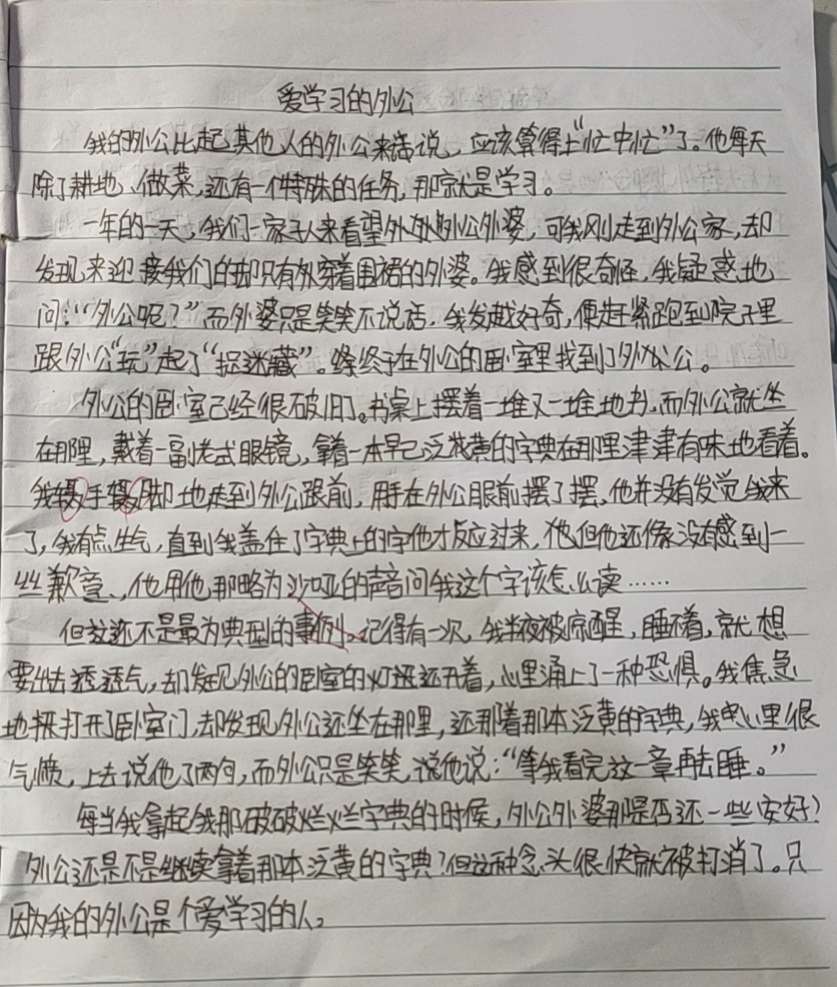 爱学习的外公
我的外公比起其他人的外公来说，应该算得上“忙中忙”了。他每天
除了耕地、做菜，还有一个特殊的任务，那就是学习。
一年的一天，我们一家人来看望外公外婆，可我刚走到外公家，却
发现来迎接我们的却只有穿着围裙的外婆。我感到很奇怪，我疑惑地
问：“外公呢？”而外婆只是笑笑不说话。我发越好奇，便赶紧跑到院子里
跟外公“玩”起了“捉迷藏”。终于在外公的卧室里找到了外公。
外公的卧室已经很破旧。书桌上摆着一堆又一堆地书，而外公就坐
在那哩，戴着一副老式眼镜，拿着一本早已泛黄的字典在那里津津有味地看着。
我蹑手蹑脚地走到外公跟前，用手在外公眼前摆了摆，他并没有发觉我来
了，我有点生气，直到我盖住了字典上的字他才反应过来，但他还像没有感到一
丝歉意，他用他那略为沙哑的声音问我这个字该怎么读……
但这还不是最为典型的事例，记得有一次，我半夜被惊醒，睡不着，就想
要出去透透气，却发现外公的卧室的灯还开着，心里涌上了一种恐惧。我焦急
地打开了卧室门，却发现外公还坐在那里，还那着那本泛黄的字典，我心里很
气愤，上去说他了两句，而外公只是笑笑，说：“等我看完这一章再去睡。”
每当我拿起我那破破烂烂字典的时候，外公外婆那是否还一些安好？
外公还是不是继续拿着那本泛黄的字典？但这种念头很快就被打消了。只
因为我的外公是个爱学习的人。